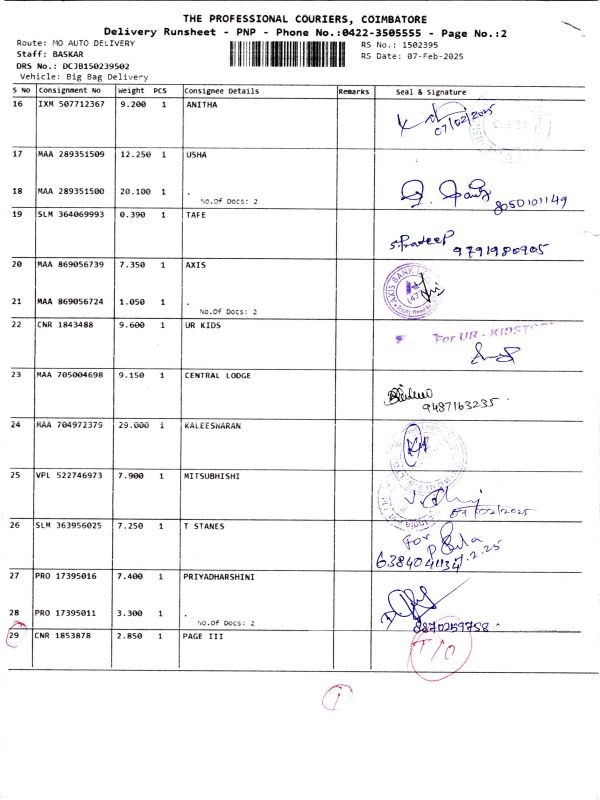 THE PROFESSIONAL COURIERS, COIMBATORE
Delivery Runsheet - PNP - Phone No.:0422-3505555 - Page No.:2
Route: MO AUTO DELIVERY RS No.: 1502395
Staff: BASKAR RS Date: 07-Feb-2025
DRS No.: DCJB150239502
Vehicle: Big Bag Delivery
S No Consignment No Weight PCS Consignee Details Remarks Seal & Signature
16 IXM 507712367 9.200 1 ANITHA
07/02/2025
17 MAA 289351509 12.250 1 USHA
18 MAA 289351500 20.100 1 .
No.Of Docs: 2
8050101149
19 SLM 364069993 0.390 1 TAFE
S.Prateep
9791980905
20 MAA 869056739 7.350 1 AXIS
AXIS BANK
21 MAA 869056724 1.050 1 .
No.Of Docs: 2
22 CNR 1843488 9.600 1 UR KIDS
For UR - KIDSTO
23 MAA 705004698 9.150 1 CENTRAL LODGE
9487163235
24 MAA 704972379 29.000 1 KALEESWARAN
25 VPL 522746973 7.900 1 MITSUBHISHI
07/02/2025
26 SLM 363956025 7.250 1 T STANES
For
27 PRO 17395016 7.400 1 PRIYADHARSHINI
28 PRO 17395011 3.300 1 .
No.Of Docs: 2
8870259758
29 CNR 1853878 2.850 1 PAGE III
T/O
1